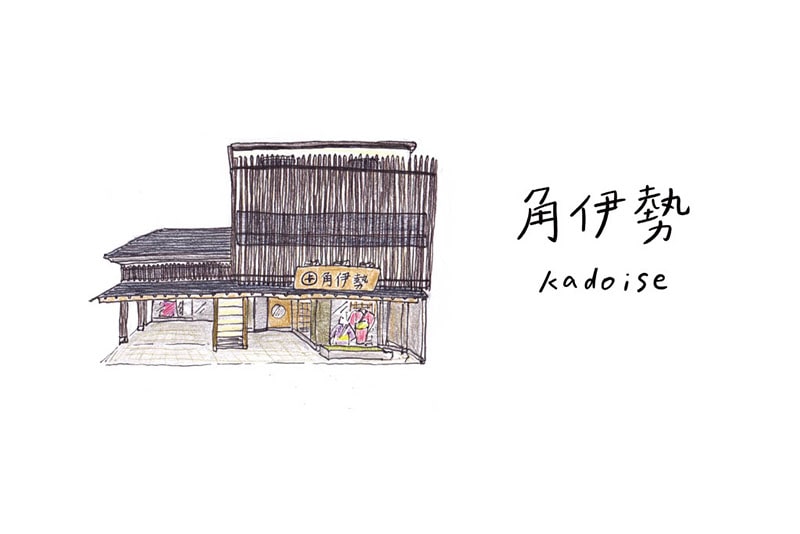 角伊勢
角伊勢
kadoise